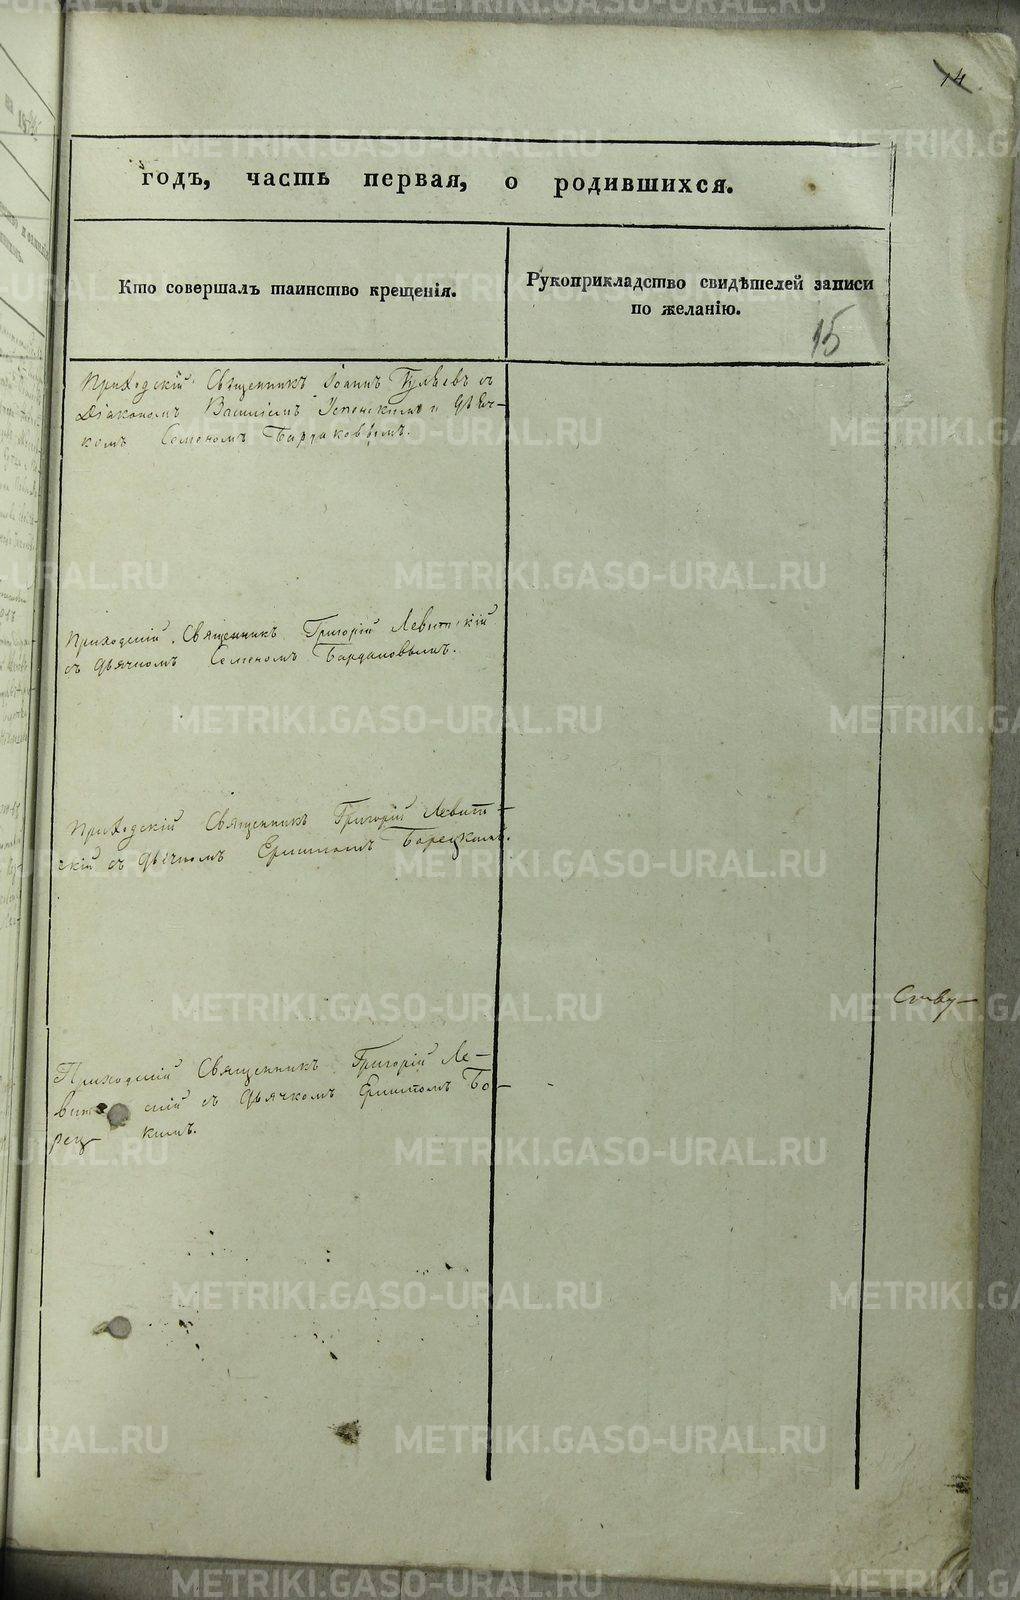 14
годъ, часть первая, о родившихся.
Кто совершалъ таинство крещенія.
Рукоприкладство свидѣтелей записи
по желанію.
15
Приходскій Священникъ Іоаннъ съ
Діакономъ Василіемъ Успенскимъ и Дьяч-
комъ Семеномъ Бардаковымъ.
Приходскій Священникъ Григорій Левитскій
съ Дьячкомъ Семеномъ Бардаковымъ.
Приходскій Священникъ Григорій Левит-
скій съ Дьячкомъ Борецкимъ.
Приходскій Священникъ Григорій Ле-
витскій съ Дьячкомъ Бо-
рец- кимъ.
METRIKI.GASO-URAL.RU